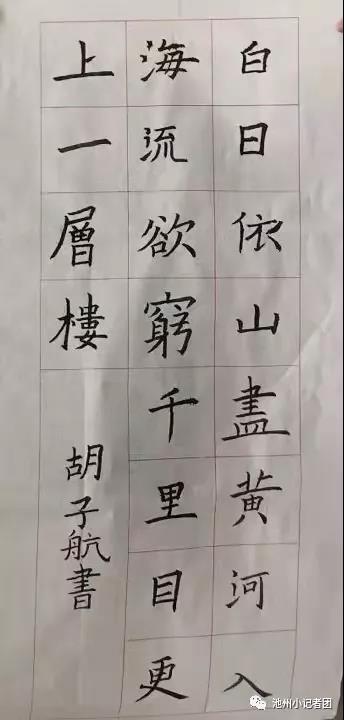 白日依山盡黃河入
海流欲窮千里目更
上一層樓
胡子航書
池州小记者团